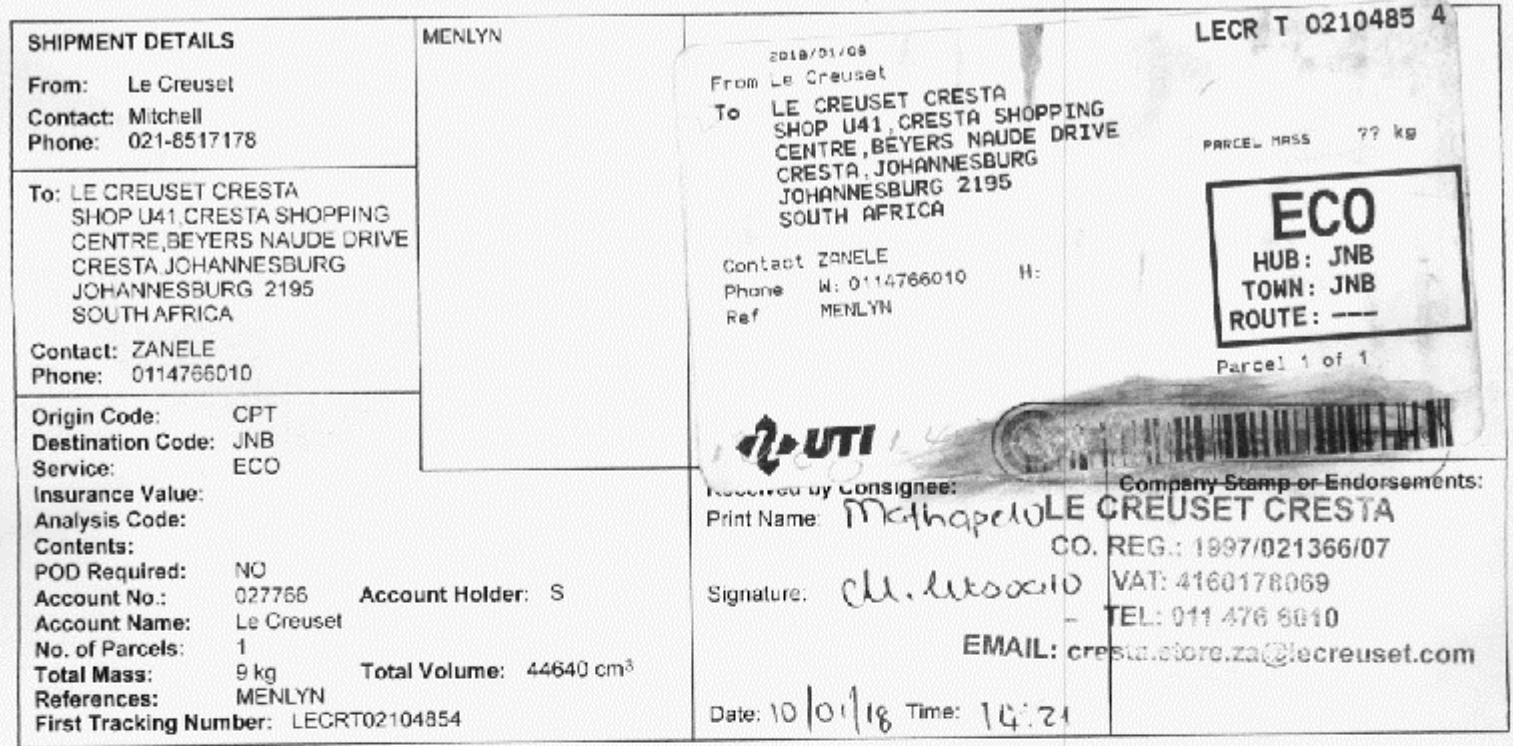 SHIPMENT DETAILS
From: Le Creuset
Contact: Mitchell
Phone: 021-8517178
To: LE CREUSET CRESTA
SHOP U41,CRESTA SHOPPING
CENTRE,BEYERS NAUDE DRIVE
CRESTA,JOHANNESBURG
JOHANNESBURG 2195
SOUTH AFRICA
Contact: ZANELE
Phone: 0114766010
Origin Code: CPT
Destination Code: JNB
Service: ECO
Insurance Value:
Analysis Code:
Contents:
POD Required: NO
Account No.: 027766 Account Holder: S
Account Name: Le Creuset
No. of Parcels: 1
Total Mass: 9 kg Total Volume: 44640 cm³
References: MENLYN
First Tracking Number: LECRT02104854
MENLYN
LECR T 0210485 4
2018/01/08
From Le Creuset
To LE CREUSET CRESTA
SHOP U41,CRESTA SHOPPING
CENTRE,BEYERS NAUDE DRIVE
CRESTA,JOHANNESBURG
JOHANNESBURG 2195
SOUTH AFRICA
Contact ZANELE
Phone W: 0114766010 H:
Ref MENLYN
PARCEL MASS ?? kg
ECO
HUB: JNB
TOWN: JNB
ROUTE: ---
Parcel 1 of 1
UTI
Received by Consignee:
Print Name: Mathapelo
Signature: M.
Date: 10/01/18 Time: 14:21
Company Stamp or Endorsements:
LE CREUSET CRESTA
CO. REG.: 1997/021366/07
VAT: 4160178069
TEL: 011 476 6010
EMAIL: cresta.store.za@lecreuset.com